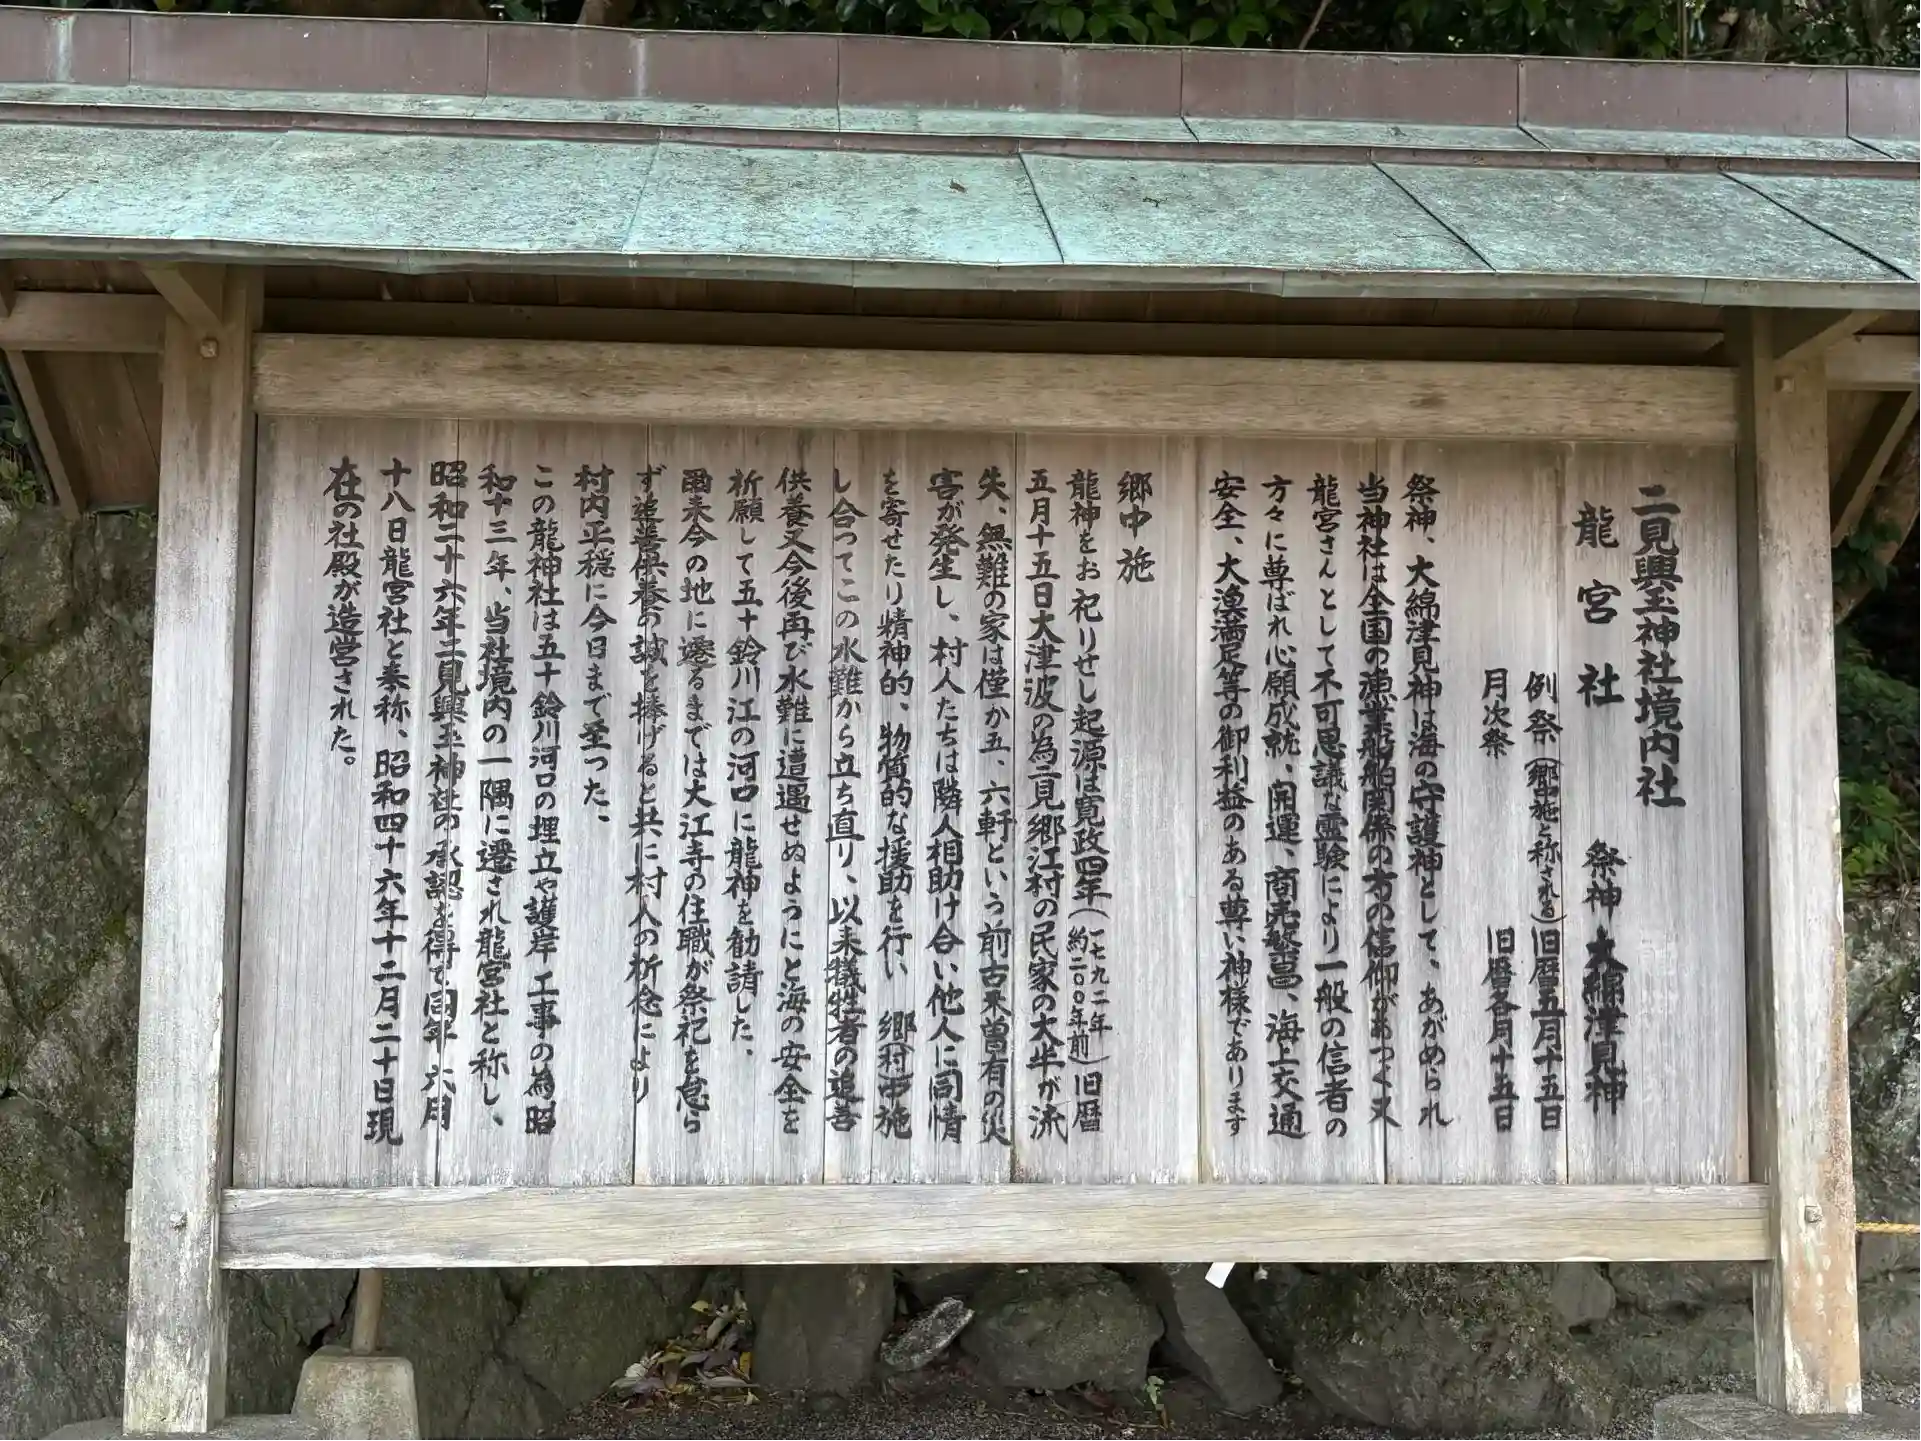 二見興玉神社境内社
龍宮社　祭神　大綿津見神
例祭（郷中施と称される）旧暦五月十五日
月次祭　旧暦各月十五日
祭神、大綿津見神は海の守護神として、あがめられ
当神社は全国の漁業船舶関係の方の信仰があつく又
龍宮さんとして不可思議な霊験により一般の信者の
方々に尊ばれ心願成就、開運、商売繁昌、海上交通
安全、大漁満足等の御利益のある尊い神様であります
郷中施
龍神をお祀りせし起源は寛政四年（一七九二年 約二〇〇年前）旧暦
五月十五日大津波の為二見郷江村の民家の大半が流
失、無難の家は僅か五、六軒という前古未曽有の災
害が発生し、村人たちは隣人相助け合い他人に同情
を寄せたり精神的、物質的な援助を行い　郷（村）中施
し合ってこの水難から立ち直り、以来犠牲者の追善
供養又今後再び水難に遭遇せぬようにと海の安全を
祈願して五十鈴川江の河口に龍神を勧請した、
爾来今の地に遷るまでは大江寺の住職が祭祀を怠ら
ず追善供養の誠を捧げると共に村人の祈念により
村内平穏に今日まで至った、
この龍神社は五十鈴川河口の埋立や護岸工事の為昭
和十三年、当社境内の一隅に遷され龍宮社と称し、
昭和二十六年二見興玉神社の承認を得て同年六月
十八日龍宮社と奉称、昭和四十六年十二月二十日現
在の社殿が造営された。